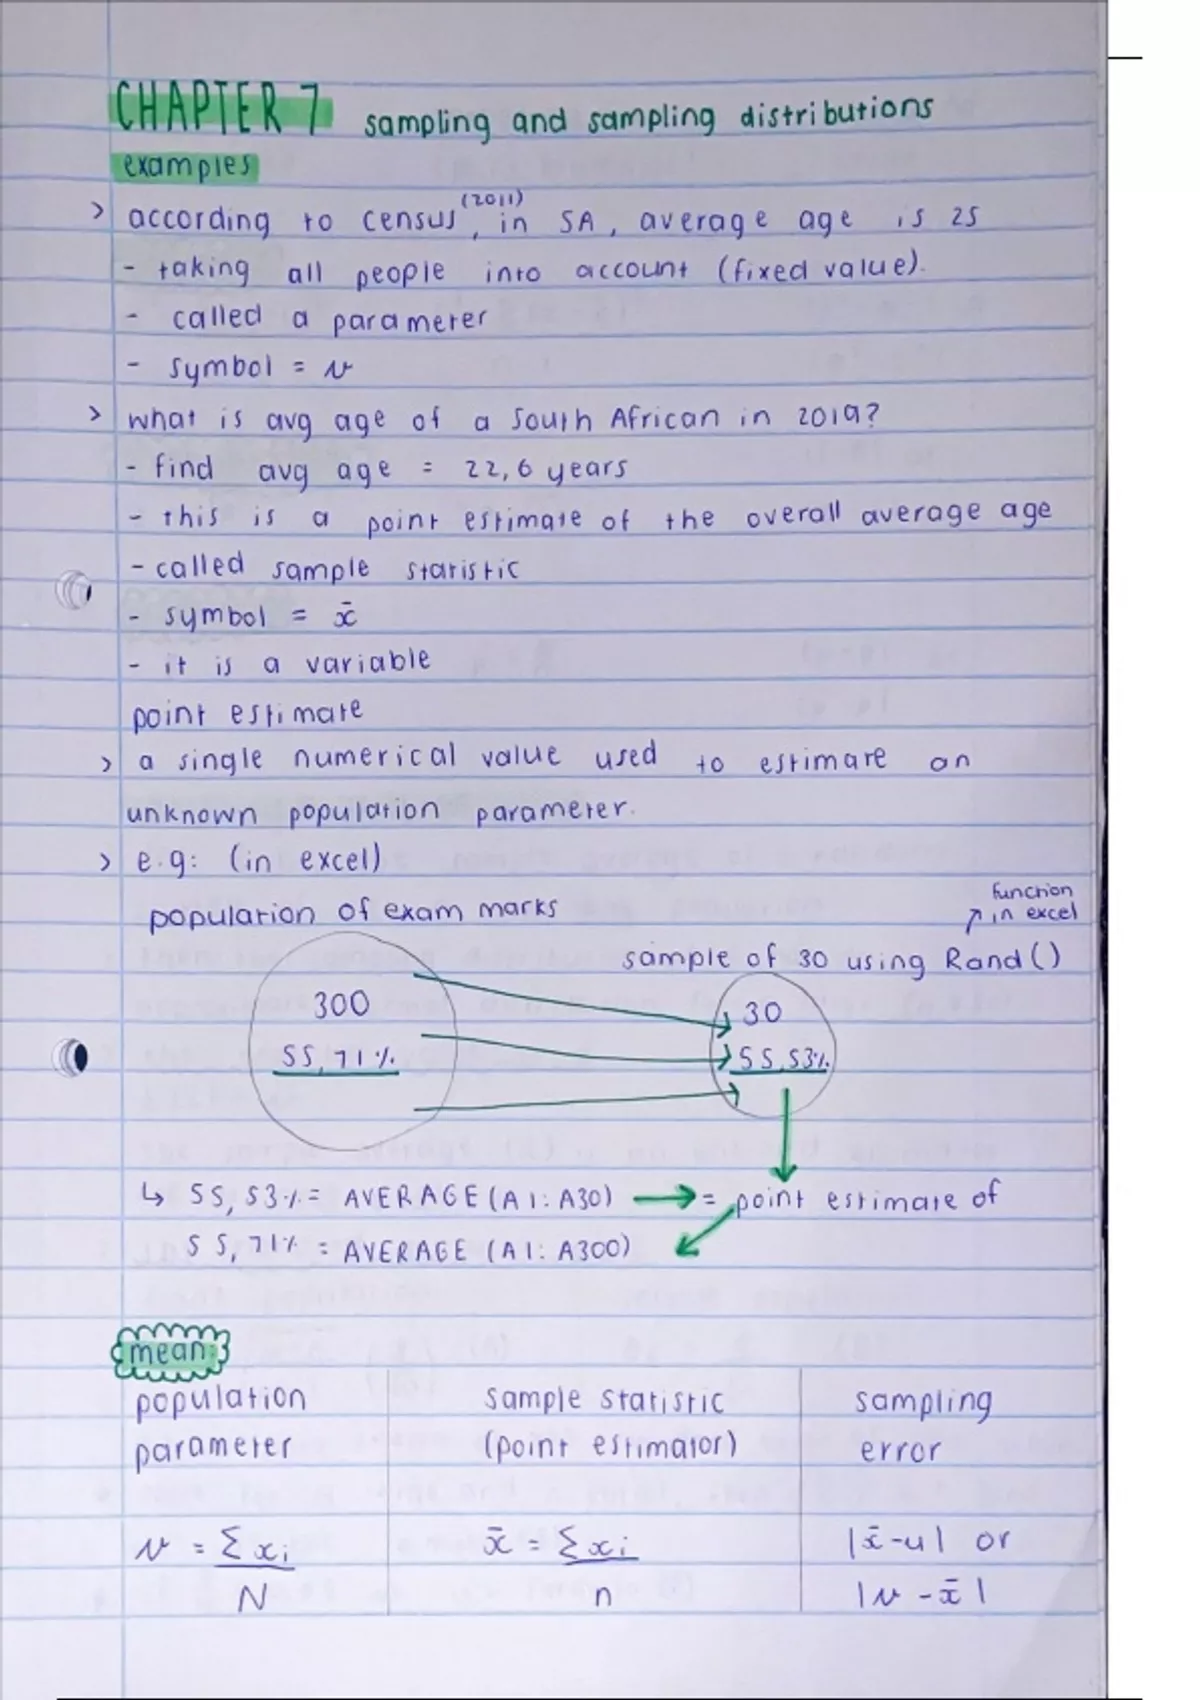 CHAPTER 7 sampling and sampling distributions
examples
> according to census (2011), in SA, average age is 25
- taking all people into account (fixed value).
- called a parameter
- symbol = μ
> what is avg age of a South African in 2019?
- find avg age = 22,6 years
- this is a point estimate of the overall average age
- called sample statistic
- symbol = x̄
- it is a variable
point estimate
> a single numerical value used to estimate an
unknown population parameter.
> e.g: (in excel)
population of exam marks
function
↗ in excel
sample of 30 using Rand()
300
55,71%
30
55,53%
↳ 55,53% = AVERAGE (A1: A30) → = point estimate of
55,71% = AVERAGE (A1: A300)
mean:
population parameter
sample statistic (point estimator)
sampling error
μ = Σxi / N
x̄ = Σxi / n
|x̄-μ| or
|μ-x̄|